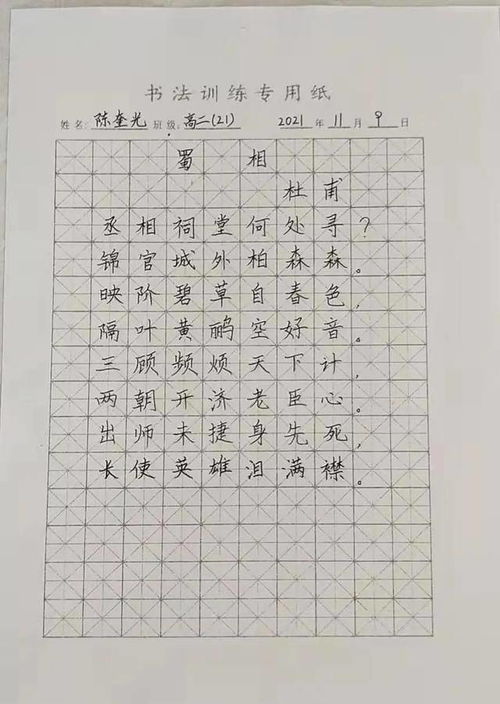 书法训练专用纸
姓名:陈奎光 班级:高二(21) 2021年11月9日
蜀相
杜甫
丞相祠堂何处寻?
锦官城外柏森森。
映阶碧草自春色,
隔叶黄鹂空好音。
三顾频烦天下计,
两朝开济老臣心。
出师未捷身先死,
长使英雄泪满襟。